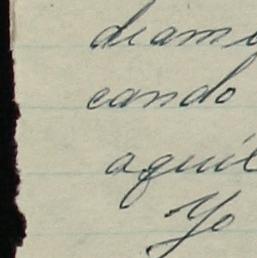 diami
cando
aquil
Yo